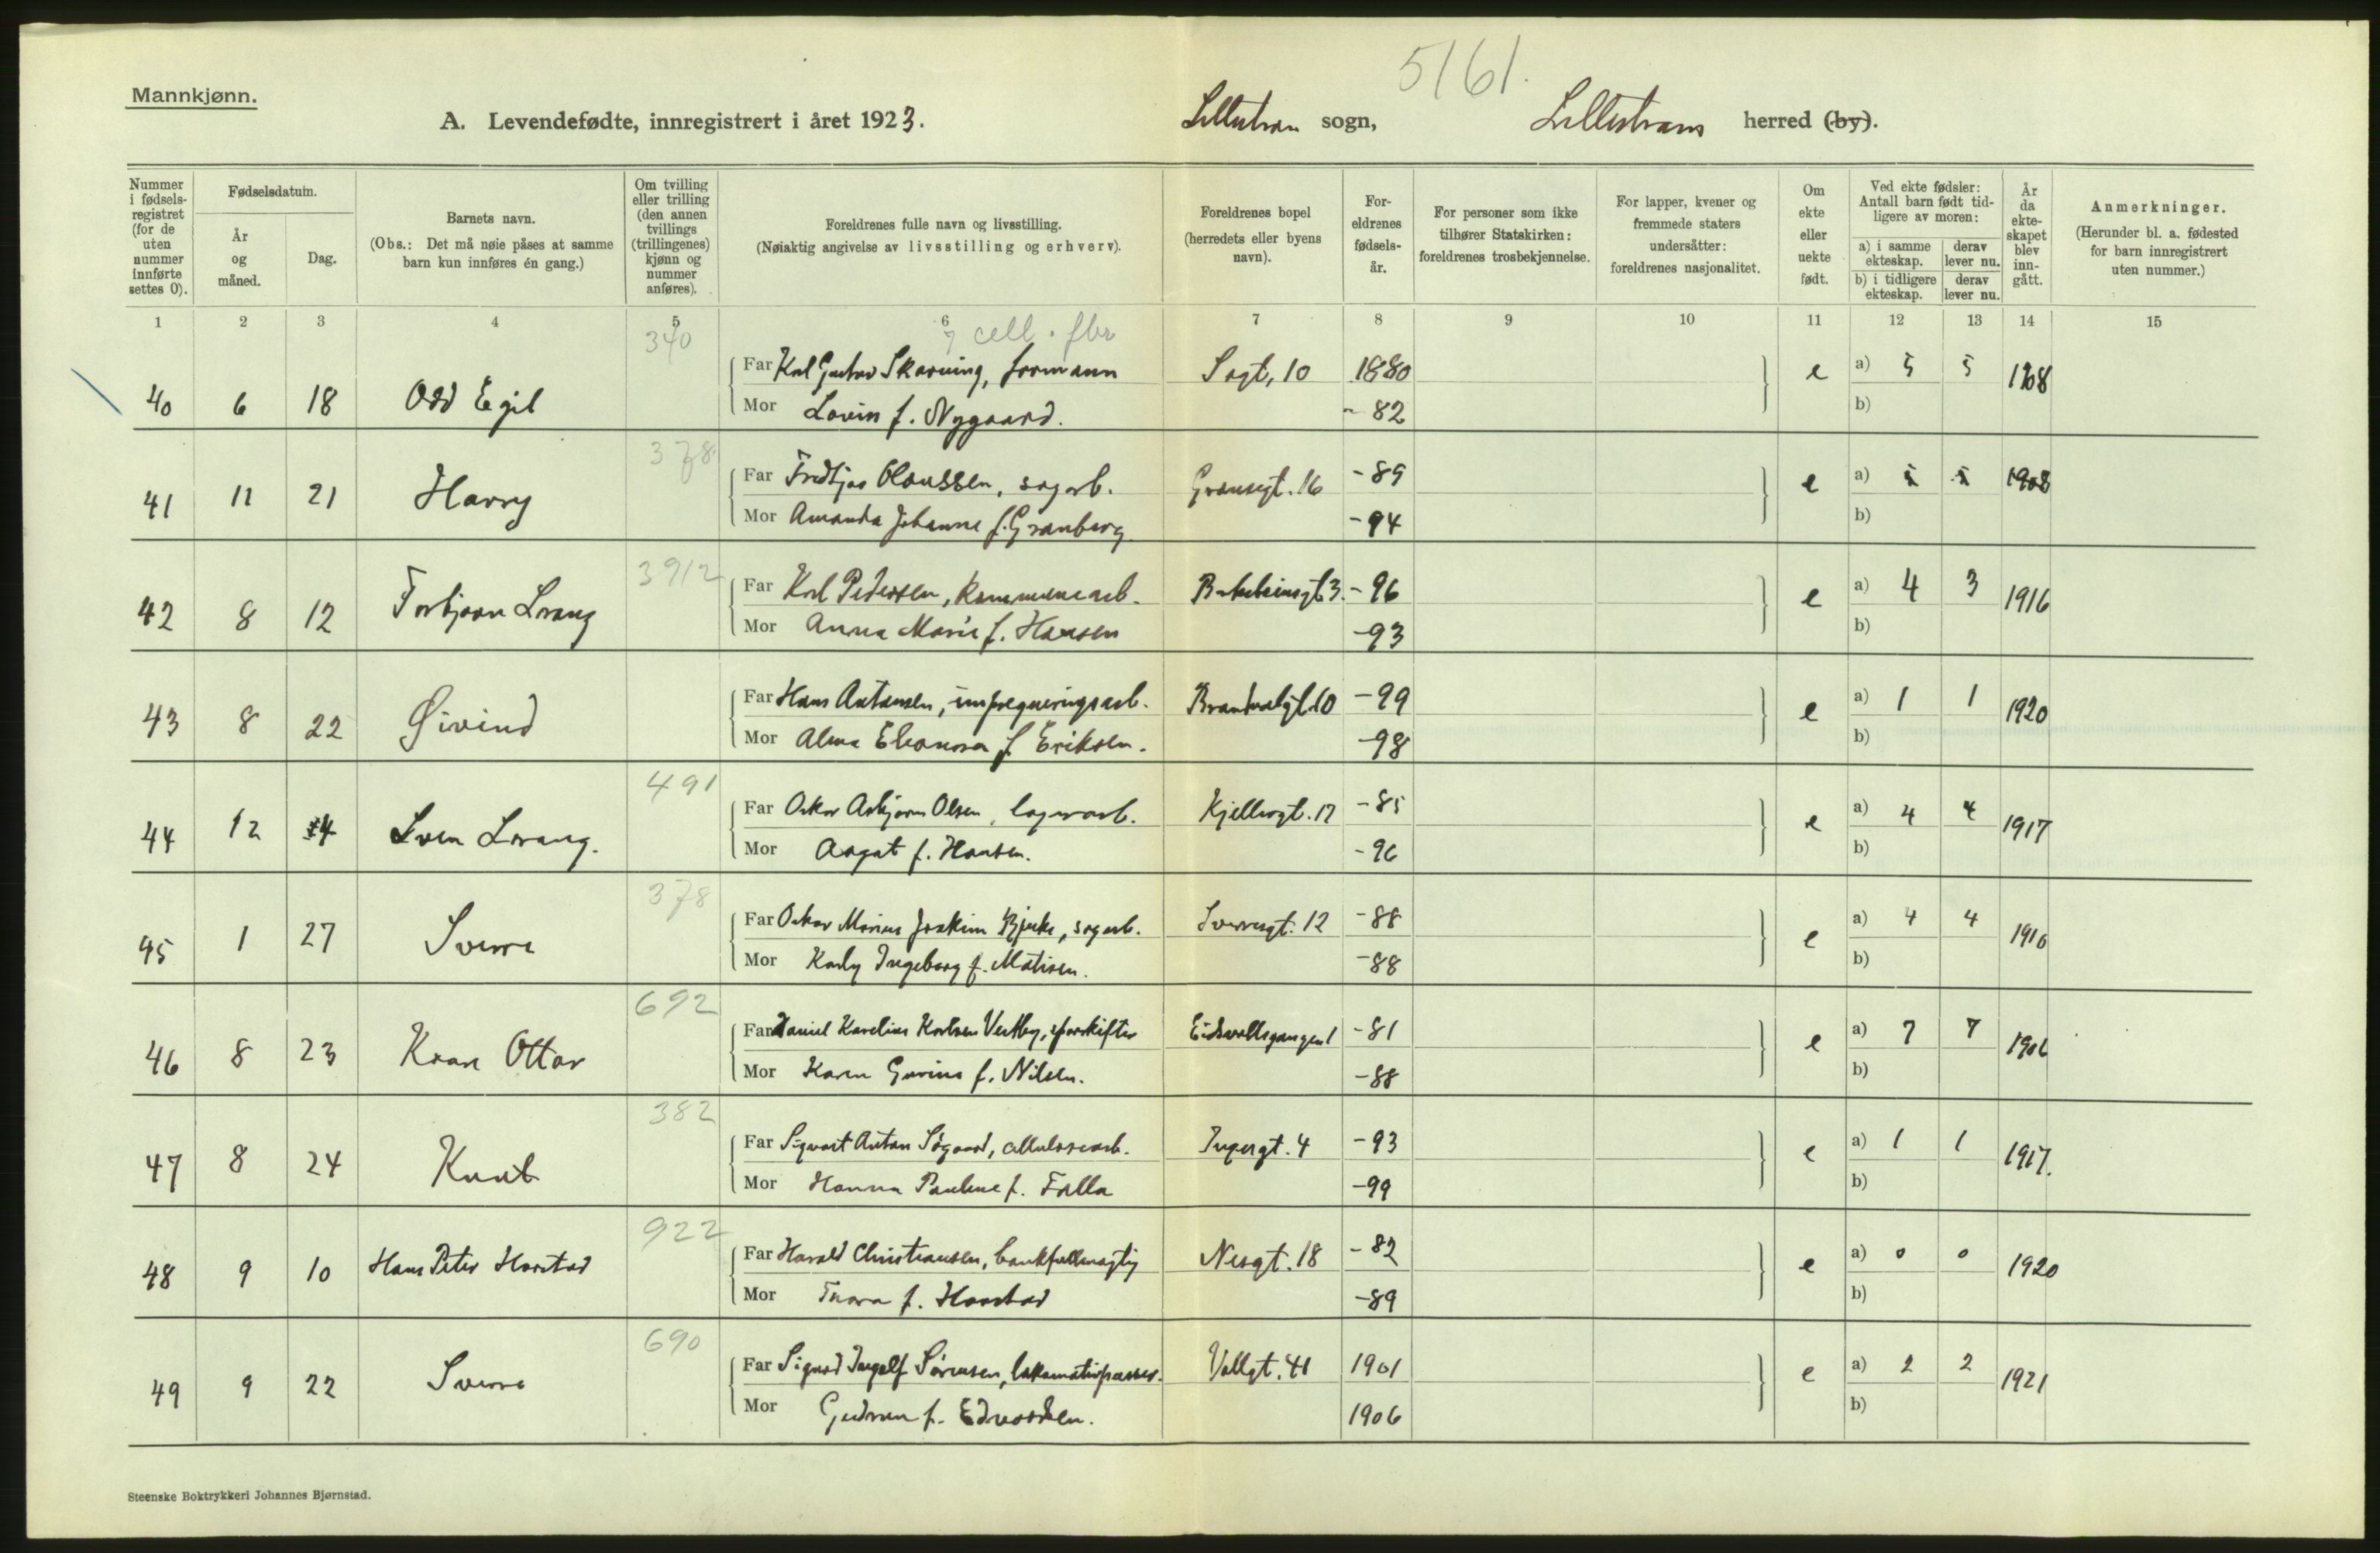 5161.
Mannkjønn.
A. Levendefødte, innregistrert i året 1923. Lillestrøm sogn, Lillestrøm herred (by).
Nummer i fødsels-registret (for de uten nummer innførte settes 0).
Fødselsdatum.
År og måned.
Dag.
Barnets navn.
(Obs.: Det må nøie påses at samme barn kun innføres én gang.)
Om tvilling eller trilling (den annen tvillings (trillingenes) kjønn og nummer anføres).
Foreldrenes fulle navn og livsstilling.
(Nøiaktig angivelse av livsstilling og erhverv).
Foreldrenes bopel (herredets eller byens navn).
For-eldrenes fødsels-år.
For personer som ikke tilhører Statskirken: foreldrenes trosbekjennelse.
For lapper, kvener og fremmede staters undersåtter: foreldrenes nasjonalitet.
Om ekte eller uekte født.
Ved ekte fødsler: Antall barn født tid-ligere av moren:
a) i samme ekteskap. derav lever nu.
b) i tidligere ekteskap. derav lever nu.
År da ekte-skapet blev inn-gått.
Anmerkninger.
(Herunder bl. a. fødested for barn innregistrert uten nummer.)
1 2 3 4 5 6 7 8 9 10 11 12 13 14 15
340 cell. fbr
40 6 18 Odd Egil Far Karl Gustav Skarning, formann Sagt, 10 1880 e a) 5 5 1908
Mor Lovise f. Nygaard. - 82 b)
378
41 11 21 Harry Far Fredtjov Olaussen, sagarb. Grønsegt. 16 - 89 e a) 1908
Mor Amanda Johanne f. Granberg - 94 b)
3912
42 8 12 Torbjørn Lrang Far Karl Pedersen, kommunearb. - 96 e a) 4 3 1916
Mor Anna Marie f. Hansen - 93 b)
43 8 22 Øivind Far Hans Antonsen, impregneringsarb. Brandvalgt. 10 - 99 e a) 1 1 1920
Mor Alma Eleonora f Eriksen. - 98 b)
491
44 12 4 Sven Lrang. Far Oskar Asbjørn Olsen, lagerarb. Kjellergt. 17 - 85 e a) 4 4 1917
Mor Aagot f. Hansen. - 96 b)
378
45 1 27 Sverre Far Oskar Marius Joakim Bjerke, sagarb. Sverresgt. 12 - 88 e a) 4 4 1910
Mor Karly Ingeborg f. Matisen. - 88 b)
692
46 8 23 Kåre Ottar Far Daniel Karelius Karlsen Vestby, sporskifter Eidsvollsgangen 1 - 81 e a) 7 7 1906
Mor Karen Gurine f. Nilsen. - 88 b)
382
47 8 24 Knut Far Sigvart Anton Søgaard, cellulosearb. Ingergt. 4 - 93 e a) 1 1 1917.
Mor Hanna Pauline f. Falla - 99 b)
922
48 9 10 Hans Peter Harstad Far Harald Christiansen, bankfullmægtig Nesgt. 18 - 82 e a) 0 0 1920
Mor Thora f. Harstad - 89 b)
690
49 9 22 Sverre Far Sigurd Ingolf Sørensen, lokomotivpusser. Vollgt. 41 1901 e a) 2 2 1921
Mor Gudrun f. Edvardsen. 1906 b)
Steenske Boktrykkeri Johannes Bjørnstad.